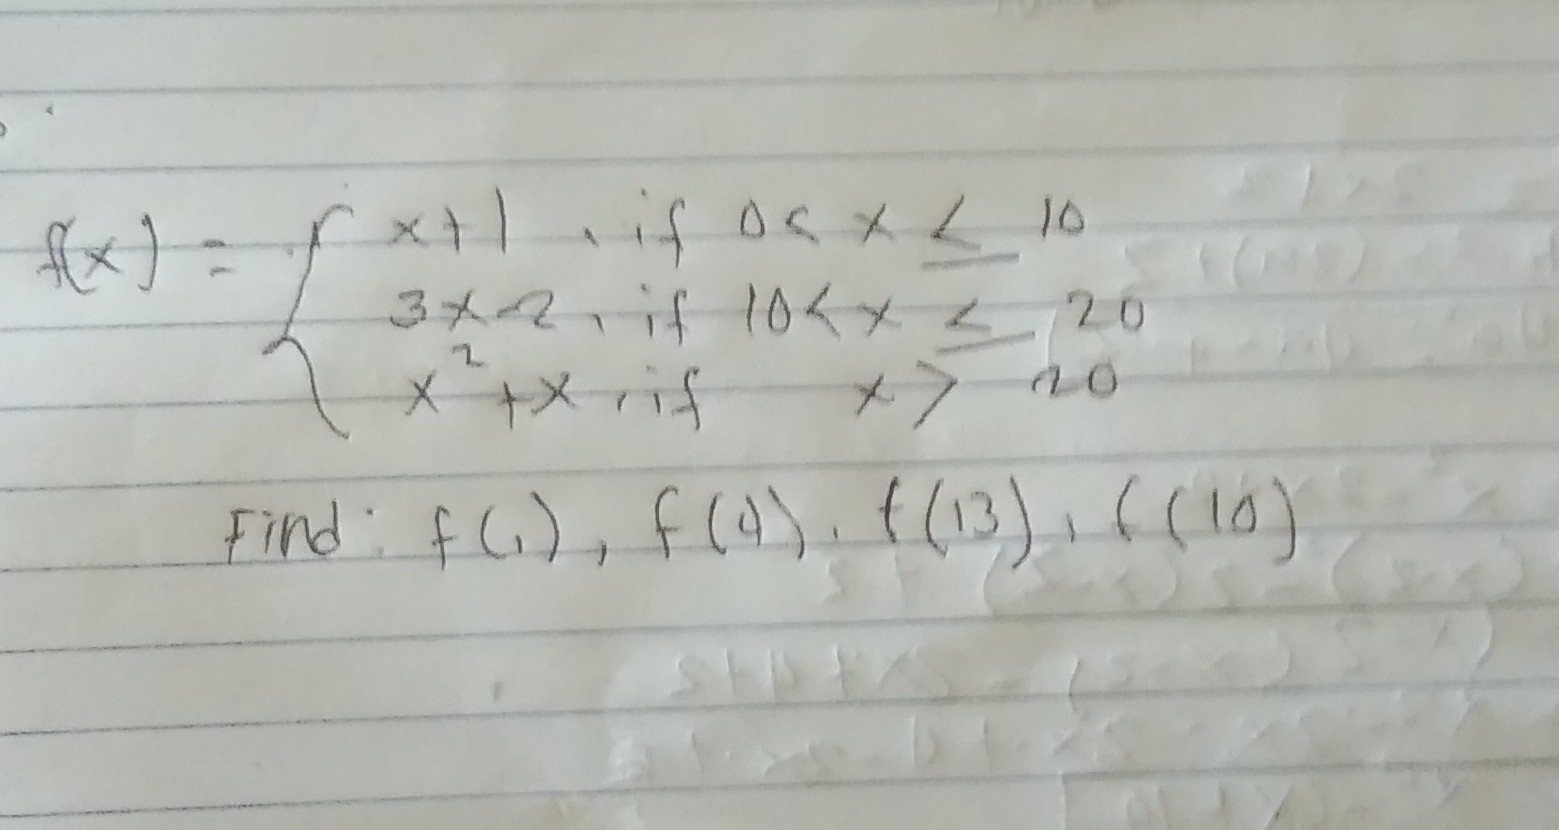 f(x) = { x+1, if 0< x ≤ 10
3x-2, if 10< x ≤ 20
x²+x, if x > 20
Find: f(1), f(4), f(13), f(10)